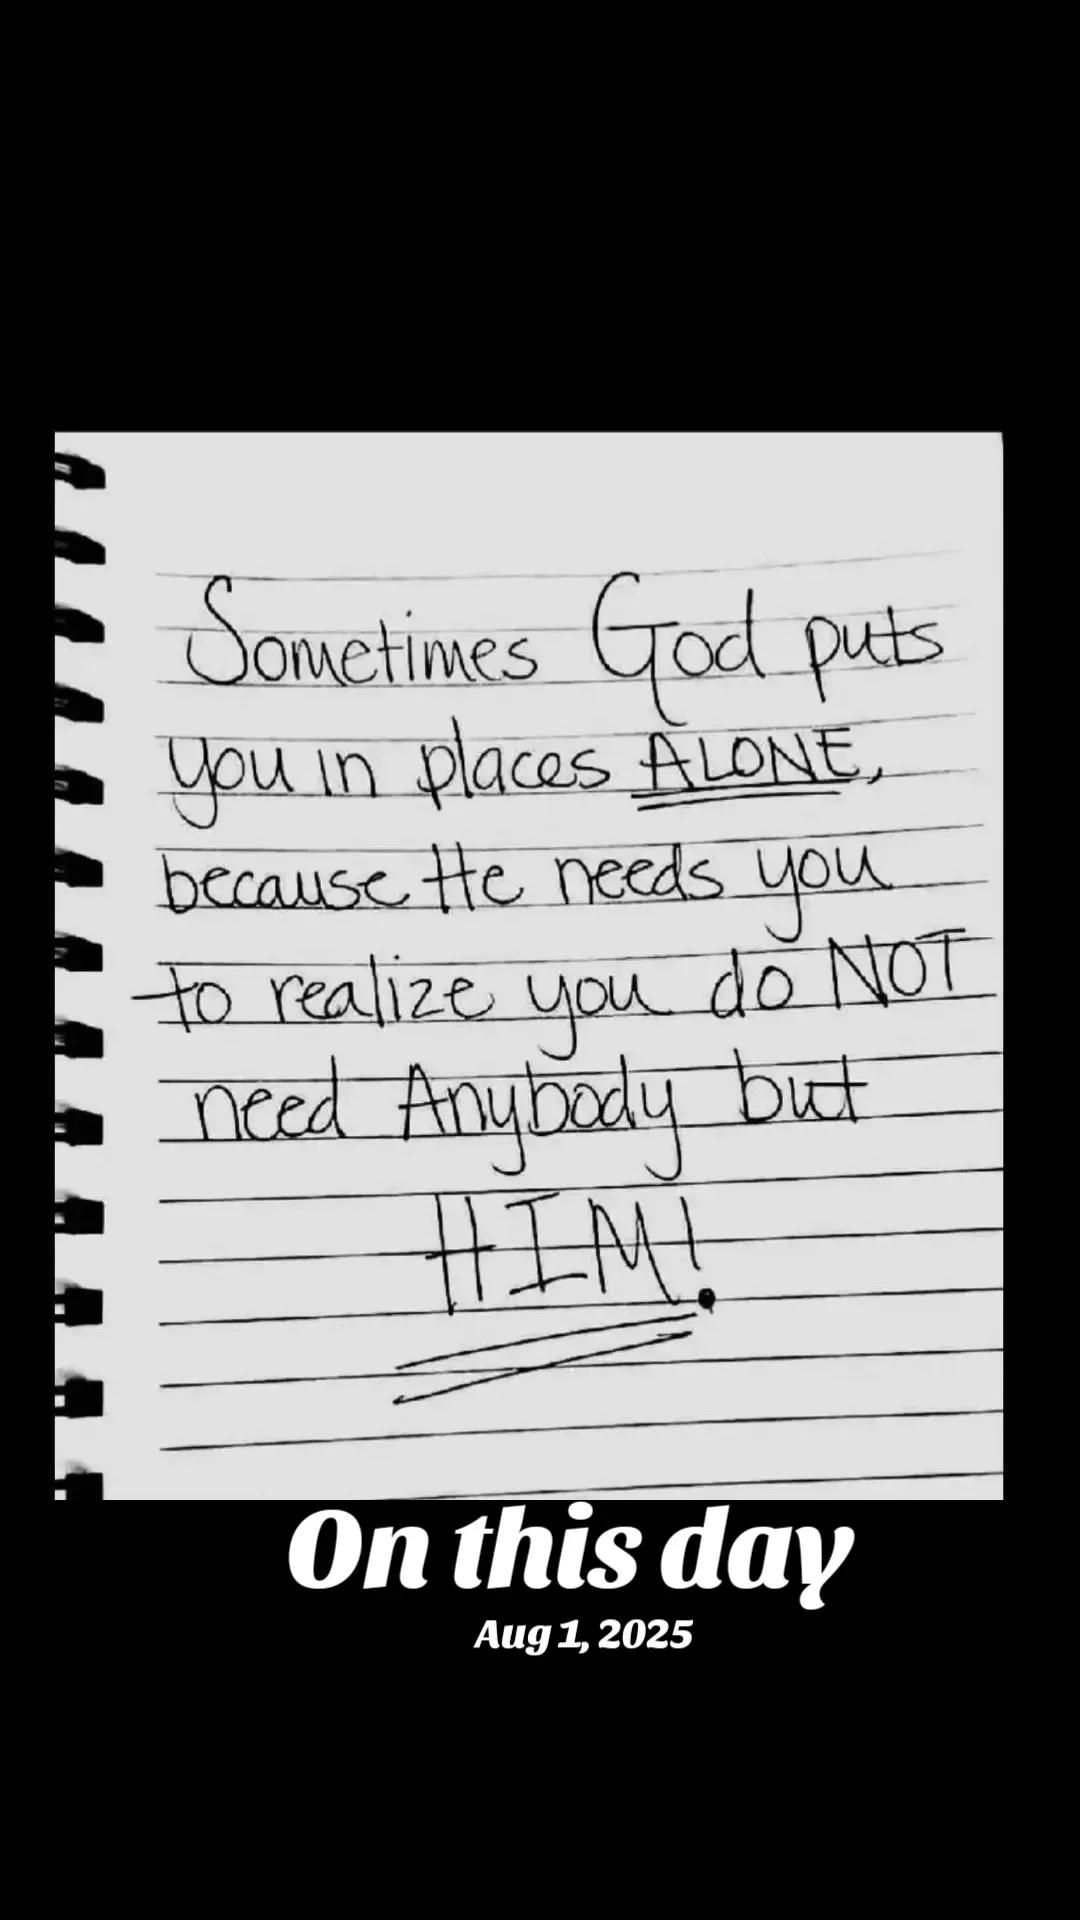 Sometimes God puts
you in places ALONE,
because He needs you
to realize you do NOT
need Anybody but
HIM!
On this day
Aug 1, 2025